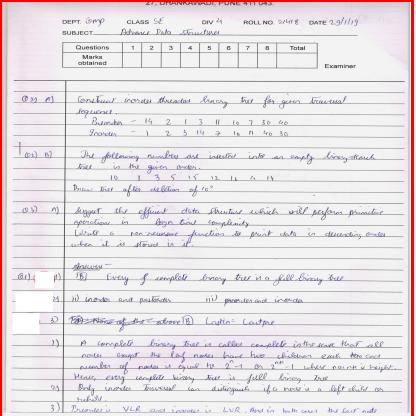 27, DHANKAWADI, PUNE 411 043.
DEPT. Comp CLASS SE DIV 4 ROLL NO. 21418 DATE 29/1/19
SUBJECT Advance Data Structures
Questions 1 2 3 4 5 6 7 8 Total
Marks obtained
Examiner
A) Construct inorder threaded binary tree for given traversal
sequence
Preorder - 14 2 1 3 11 10 7 30 40
Inorder - 1 2 3 14 7 10 11 40 30
B) The following numbers are inserted into an empty binary search
tree in the given order.
10 1 3 5 15 12 16
Draw tree after deletion of 10
A) Suggest the efficient data structure which will perform primitive
operations in logn time complexity.
Write a non-recursive function to print data in descending order
when it is stored in it.
Answer
(B) Every complete binary tree is a full binary tree
2) ii) inorder and postorder iii) preorder and inorder
3) None of the above (B)
1) A complete binary tree is called complete in the sense that all
nodes except the leaf nodes have two children each
number of nodes is equal to 2^n-1 or where n is height.
Hence, every complete binary tree is full binary tree
2) Only inorder traversal can distinguish if a node is a left child or
3) Preorder is VLR and inorder is LVR. And in both cases the last node